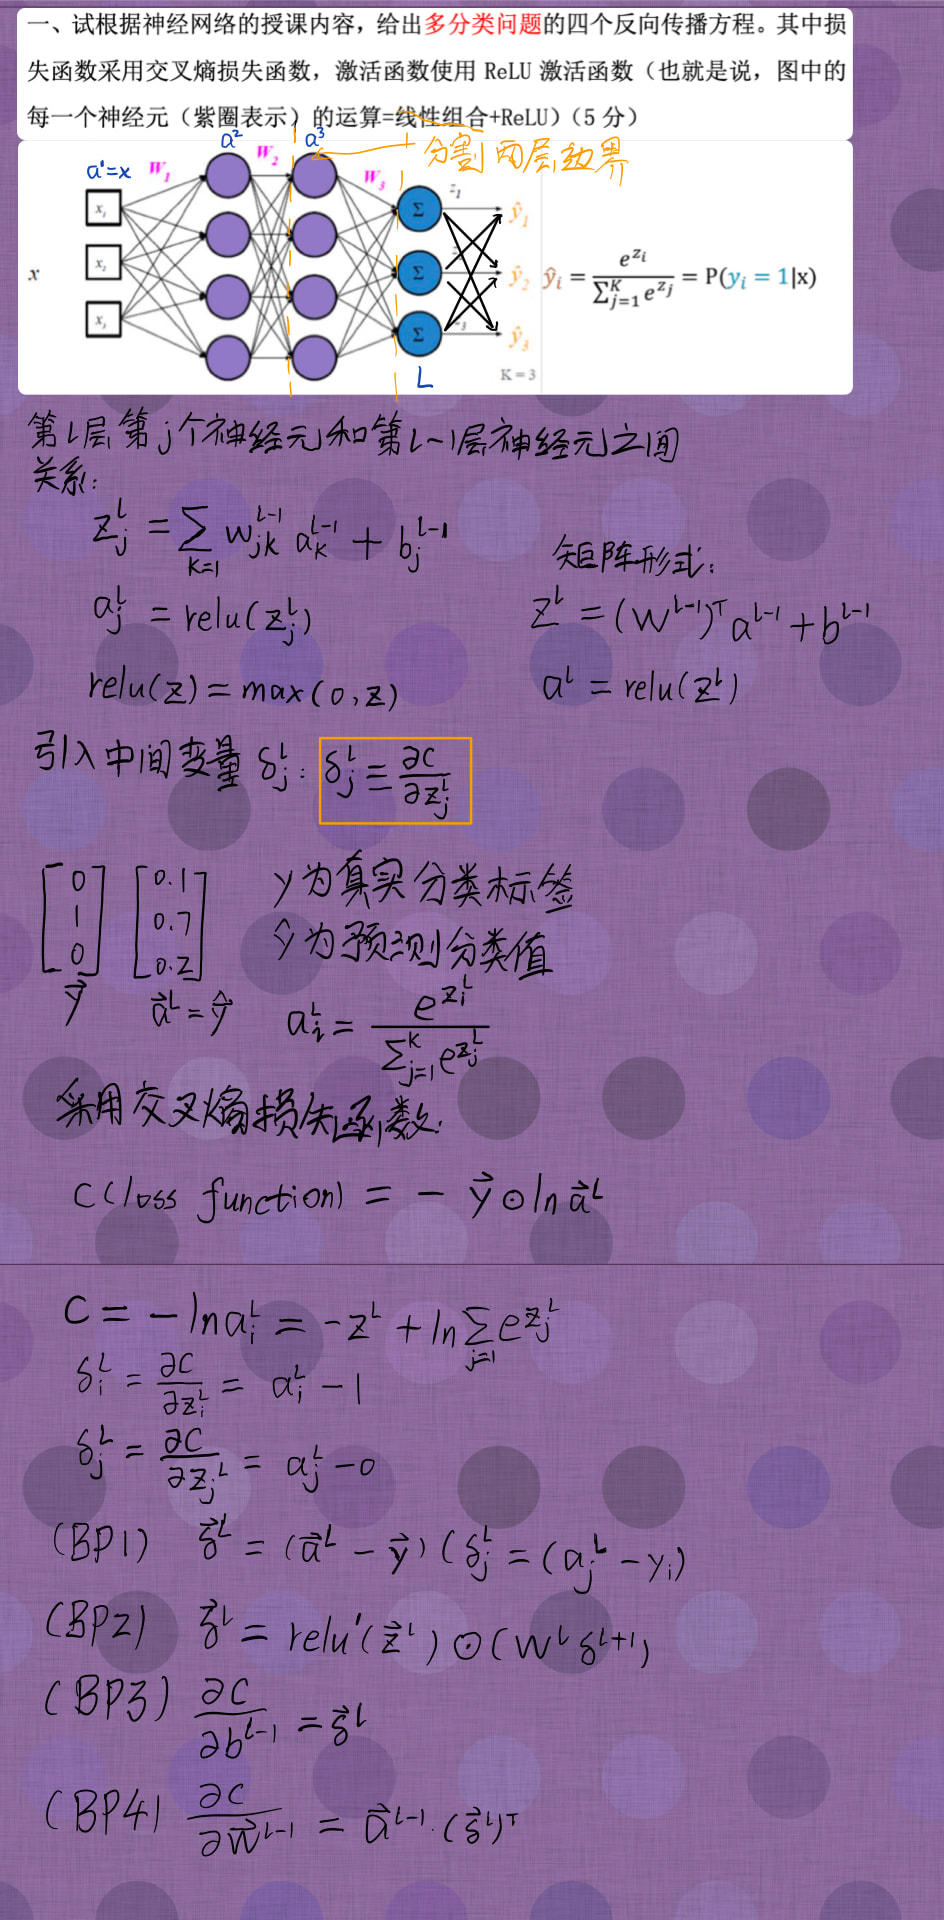 一、试根据神经网络的授课内容，给出多分类问题的四个反向传播方程。其中损
失函数采用交叉熵损失函数，激活函数使用 ReLU 激活函数（也就是说，图中的
每一个神经元（紫圈表示）的运算=线性组合+ReLU）（5 分）
a¹=x W₁ a² W₂ a³ 分割两层边界
W₃
x₁
x₂
x₃
x
Σ
Σ
Σ
z₁
z₃
ŷ₁
ŷ₂
ŷ₃
L
K = 3
ŷᵢ = e^{zᵢ} / Σ_{j=1}^{K} e^{zⱼ} = P(yᵢ = 1|x)
第l层第j个神经元和第l-1层神经元之间
关系:
z_j^l = Σ_{k=1} w_{jk}^{l-1} a_k^{l-1} + b_j^{l-1}
矩阵形式:
a_j^l = relu(z_j^l)
z^l = (w^{l-1})^T a^{l-1} + b^{l-1}
relu(z) = max(0, z)
a^l = relu(z^l)
引入中间变量 δ_j^l: δ_j^l ≡ ∂C/∂z_j^l
[0 1 0] [0.1 0.7 0.2]
y为真实分类标签
ŷ为预测分类值
y⃗ a⃗^L = ŷ
a_i^L = e^{z_i^L} / Σ_{j=1}^{K} e^{z_j^L}
采用交叉熵损失函数:
C(loss function) = - y⃗ ⊙ ln a⃗^L
C = -ln a_i^L = -z^L + ln Σ_{j=1} e^{z_j^L}
δ_i^L = ∂C/∂z_i^L = a_i^L - 1
δ_j^L = ∂C/∂z_j^L = a_j^L - 0
(BP1) δ⃗^L = (a⃗^L - y⃗) (δ_j^L = (a_j^L - y_i)
(BP2) δ⃗^l = relu'(z⃗^l) ⊙ (w^l δ^{l+1})
(BP3) ∂C/∂b^{l-1} = δ⃗^l
(BP4) ∂C/∂w⃗^{l-1} = a⃗^{l-1} · (δ⃗^l)^T